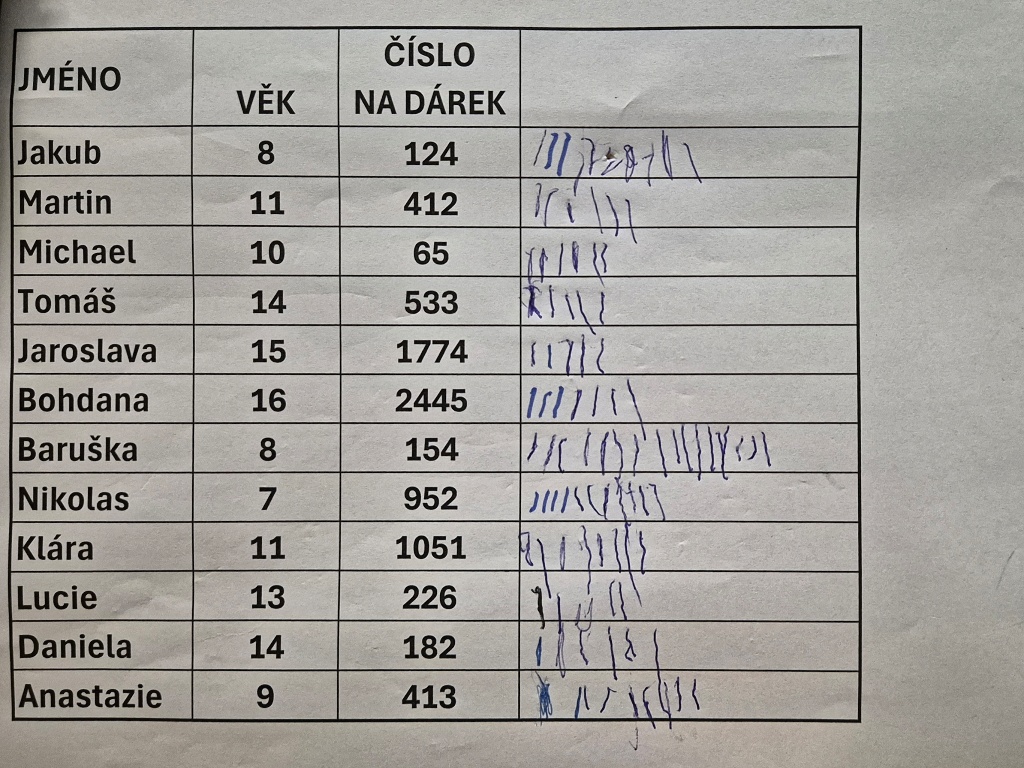 JMÉNO VĚK ČÍSLO NA DÁREK
Jakub 8 124
Martin 11 412
Michael 10 65
Tomáš 14 533
Jaroslava 15 1774
Bohdana 16 2445
Baruška 8 154
Nikolas 7 952
Klára 11 1051
Lucie 13 226
Daniela 14 182
Anastazie 9 413